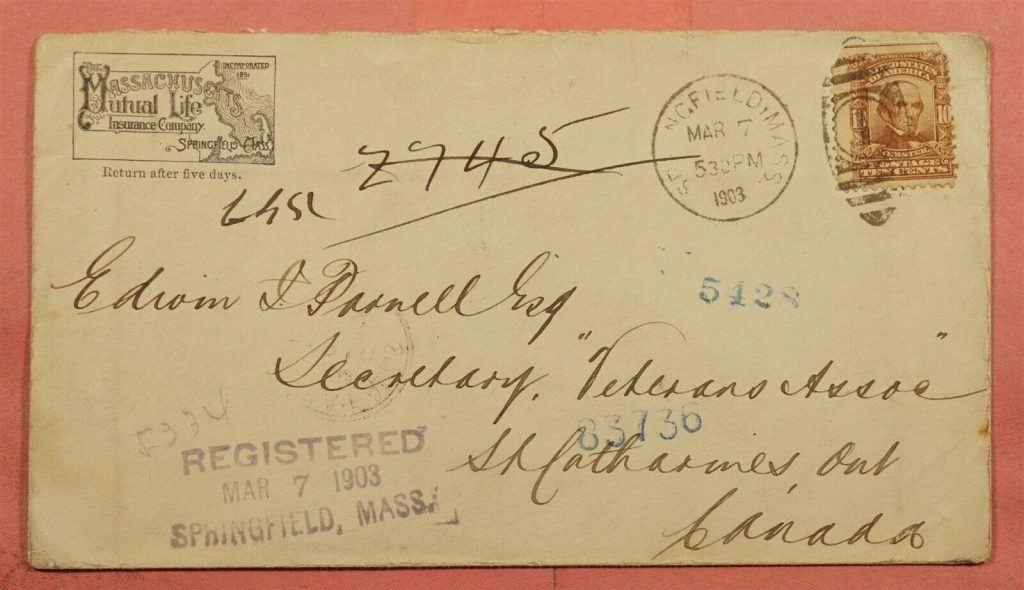 THE
MASSACHUSETTS
Mutual Life
Insurance Company.
SPRINGFIELD MASS.
INCORPORATED
1851
Return after five days.
7745
SPRINGFIELD, MASS.
MAR 7
530PM
1903
UNITED STATES
OF AMERICA
10 10
WEBSTER
POSTAGE
TEN CENTS
Edwin I Parnell Esq
5428
Secretary, "Veterans Assoc"
83736
St Catharines, Ont
Canada
5334
REGISTERED
MAR 7 1903
SPRINGFIELD, MASS.